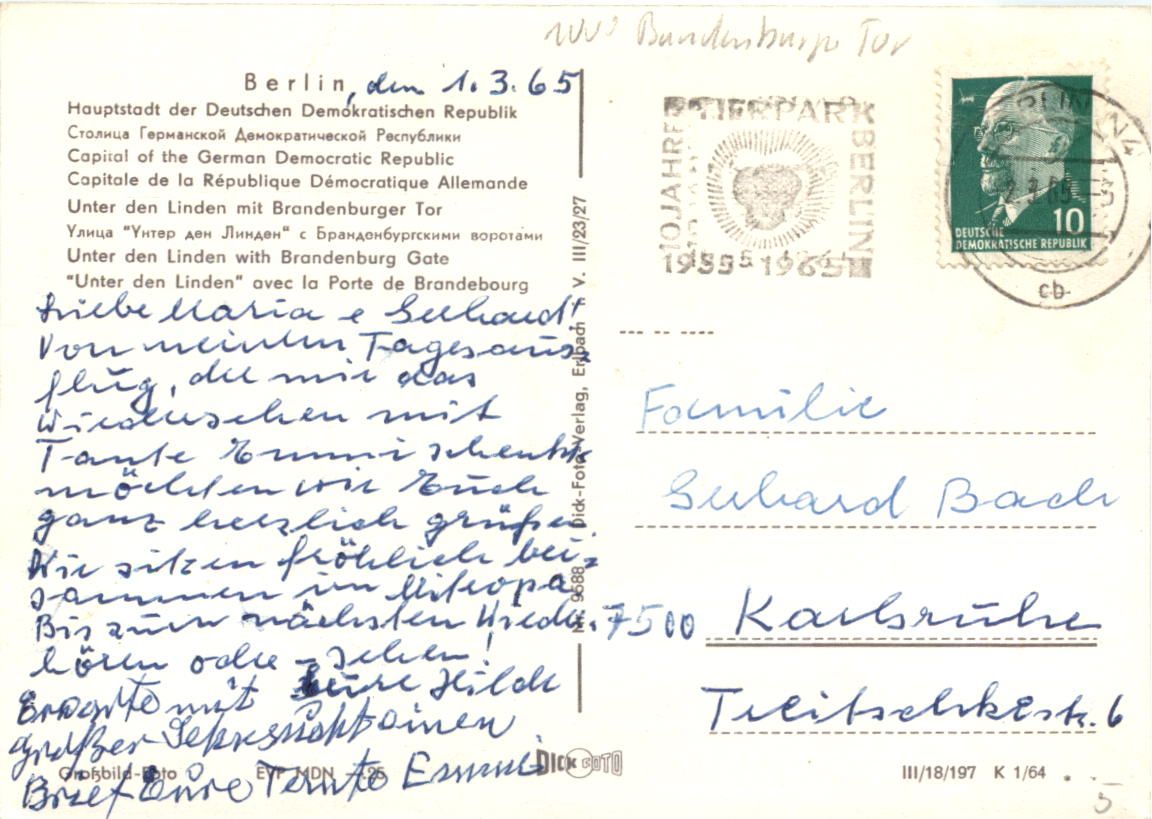 1000 Brandenburger Tor
Berlin, den 1.3.65
Hauptstadt der Deutschen Demokratischen Republik
Столица Германской Демократической Республики
Capital of the German Democratic Republic
Capitale de la République Démocratique Allemande
Unter den Linden mit Brandenburger Tor
Улица "Унтер ден Линден" с Бранденбургскими воротами
Unter den Linden with Brandenburg Gate
"Unter den Linden" avec la Porte de Brandebourg
Liebe Maria e Gerhard!
Von meinem Tagesaus-
flug, der mir das
Wiedersehen mit
Tante Emmi schenkte
möchten wir Euch
ganz herzlich grüßen.
Wir sitzen fröhlich bei-
sammen im Mitropa
Bis zum nächsten Wieder-
hören oder - sehen!
Eure Hilde
Erwarte mit
großer Sehnsucht einen
Brief Eure Tante Emmi
Großbild-Foto EVP MDN -,25
DICK FOTO
Nr. 9688 Dick-Foto-Verlag, Erlbach i. V. III/23/27
10 JAHRE TIERPARK BERLIN
1955-1965
BERLIN N4
2.3.65
cb
10
DEUTSCHE
DEMOKRATISCHE REPUBLIK
Familie
Gerhard Bach
7500 Karlsruhe
Treitschkestr. 6
III/18/197 K 1/64
5